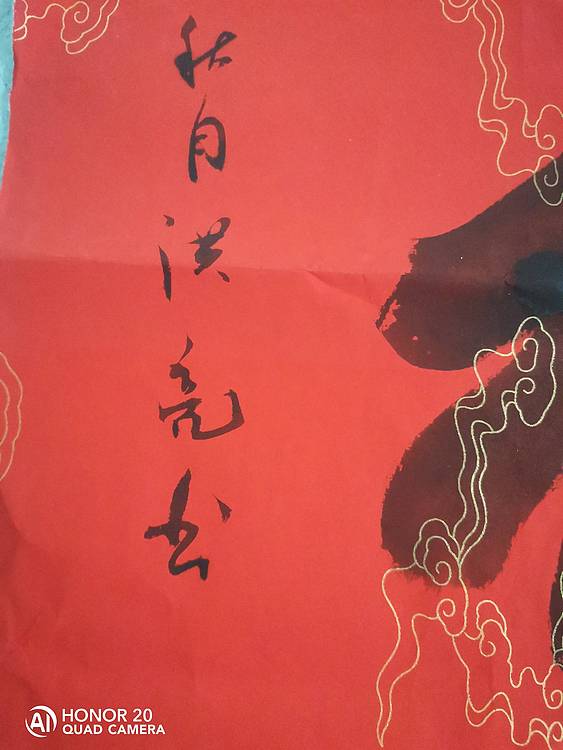 秋月洪亮书
AI HONOR 20
QUAD CAMERA